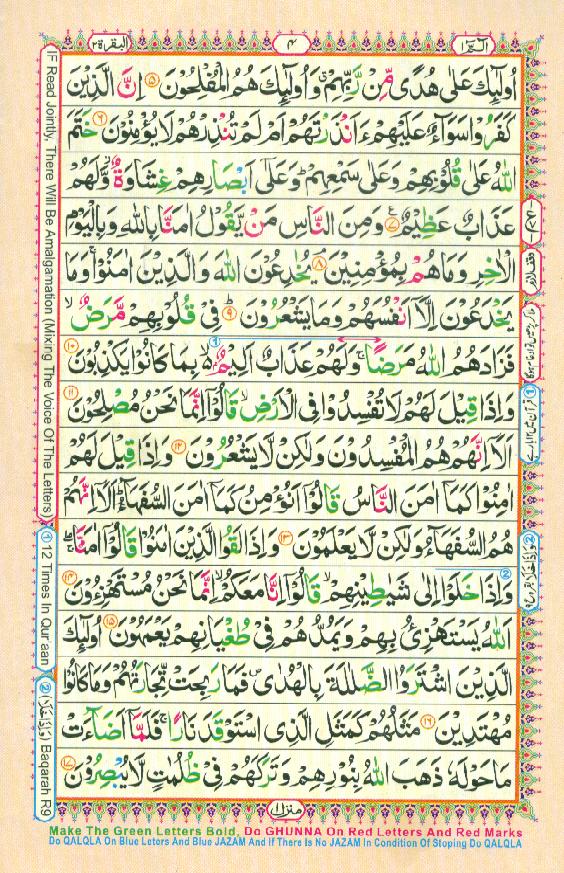 الٓمّٓ ١
٤
البقرة ٢
اُولٰٓئِكَ عَلٰى هُدًى مِّنْ رَّبِّهِمْ وَاُولٰٓئِكَ هُمُ الْمُفْلِحُوْنَ ۝٥ اِنَّ الَّذِيْنَ
كَفَرُوْا سَوَآءٌ عَلَيْهِمْ ءَاَنْذَرْتَهُمْ اَمْ لَمْ تُنْذِرْهُمْ لَا يُؤْمِنُوْنَ ۝٦ خَتَمَ
اللّٰهُ عَلٰى قُلُوْبِهِمْ وَعَلٰى سَمْعِهِمْ ؕ وَعَلٰٓى اَبْصَارِهِمْ غِشَاوَةٌ ز وَّلَهُمْ
عَذَابٌ عَظِيْمٌ ۝٧ ع وَمِنَ النَّاسِ مَنْ يَّقُوْلُ اٰمَنَّا بِاللّٰهِ وَبِالْيَوْمِ
الْاٰخِرِ وَمَا هُمْ بِمُؤْمِنِيْنَ ۝٨ يُخٰدِعُوْنَ اللّٰهَ وَالَّذِيْنَ اٰمَنُوْا ۚ وَمَا
يَخْدَعُوْنَ اِلَّآ اَنْفُسَهُمْ وَمَا يَشْعُرُوْنَ ۝٩ فِيْ قُلُوْبِهِمْ مَّرَضٌ ۙ
فَزَادَهُمُ اللّٰهُ مَرَضًا ۚ وَلَهُمْ عَذَابٌ اَلِيْمٌۢ ۙ بِمَا كَانُوْا يَكْذِبُوْنَ ۝١٠
وَاِذَا قِيْلَ لَهُمْ لَا تُفْسِدُوْا فِي الْاَرْضِ ۙ قَالُوْٓا اِنَّمَا نَحْنُ مُصْلِحُوْنَ ۝١١
اَلَآ اِنَّهُمْ هُمُ الْمُفْسِدُوْنَ وَلٰكِنْ لَّا يَشْعُرُوْنَ ۝١٢ وَاِذَا قِيْلَ لَهُمْ
اٰمِنُوْا كَمَآ اٰمَنَ النَّاسُ قَالُوْٓا اَنُؤْمِنُ كَمَآ اٰمَنَ السُّفَهَآءُ ؕ اَلَآ اِنَّهُمْ
هُمُ السُّفَهَآءُ وَلٰكِنْ لَّا يَعْلَمُوْنَ ۝١٣ وَاِذَا لَقُوا الَّذِيْنَ اٰمَنُوْا قَالُوْٓا اٰمَنَّا ۖۚ
وَاِذَا خَلَوْا اِلٰى شَيٰطِيْنِهِمْ ۙ قَالُوْٓا اِنَّا مَعَكُمْ ۙ اِنَّمَا نَحْنُ مُسْتَهْزِءُوْنَ ۝١٤
اَللّٰهُ يَسْتَهْزِئُ بِهِمْ وَيَمُدُّهُمْ فِيْ طُغْيَانِهِمْ يَعْمَهُوْنَ ۝١٥ اُولٰٓئِكَ
الَّذِيْنَ اشْتَرَوُا الضَّلٰلَةَ بِالْهُدٰى ۪ فَمَا رَبِحَتْ تِّجَارَتُهُمْ وَمَا كَانُوْا
مُهْتَدِيْنَ ۝١٦ مَثَلُهُمْ كَمَثَلِ الَّذِي اسْتَوْقَدَ نَارًا ۚ فَلَمَّآ اَضَآءَتْ
مَا حَوْلَهٗ ذَهَبَ اللّٰهُ بِنُوْرِهِمْ وَتَرَكَهُمْ فِيْ ظُلُمٰتٍ لَّا يُبْصِرُوْنَ ۝١٧
منزل ١
IF Read Jointly, There Will Be Amalgamation (Mixing The Voice Of The Letters) ① 12 Times In Qur'aan ② (وَاِذَاخَلَا) Baqarah R9
Make The Green Letters Bold, Do GHUNNA On Red Letters And Red Marks
Do QALQLA On Blue Leters And Blue JAZAM And If There Is No JAZAM In Condition Of Stoping Do QALQLA